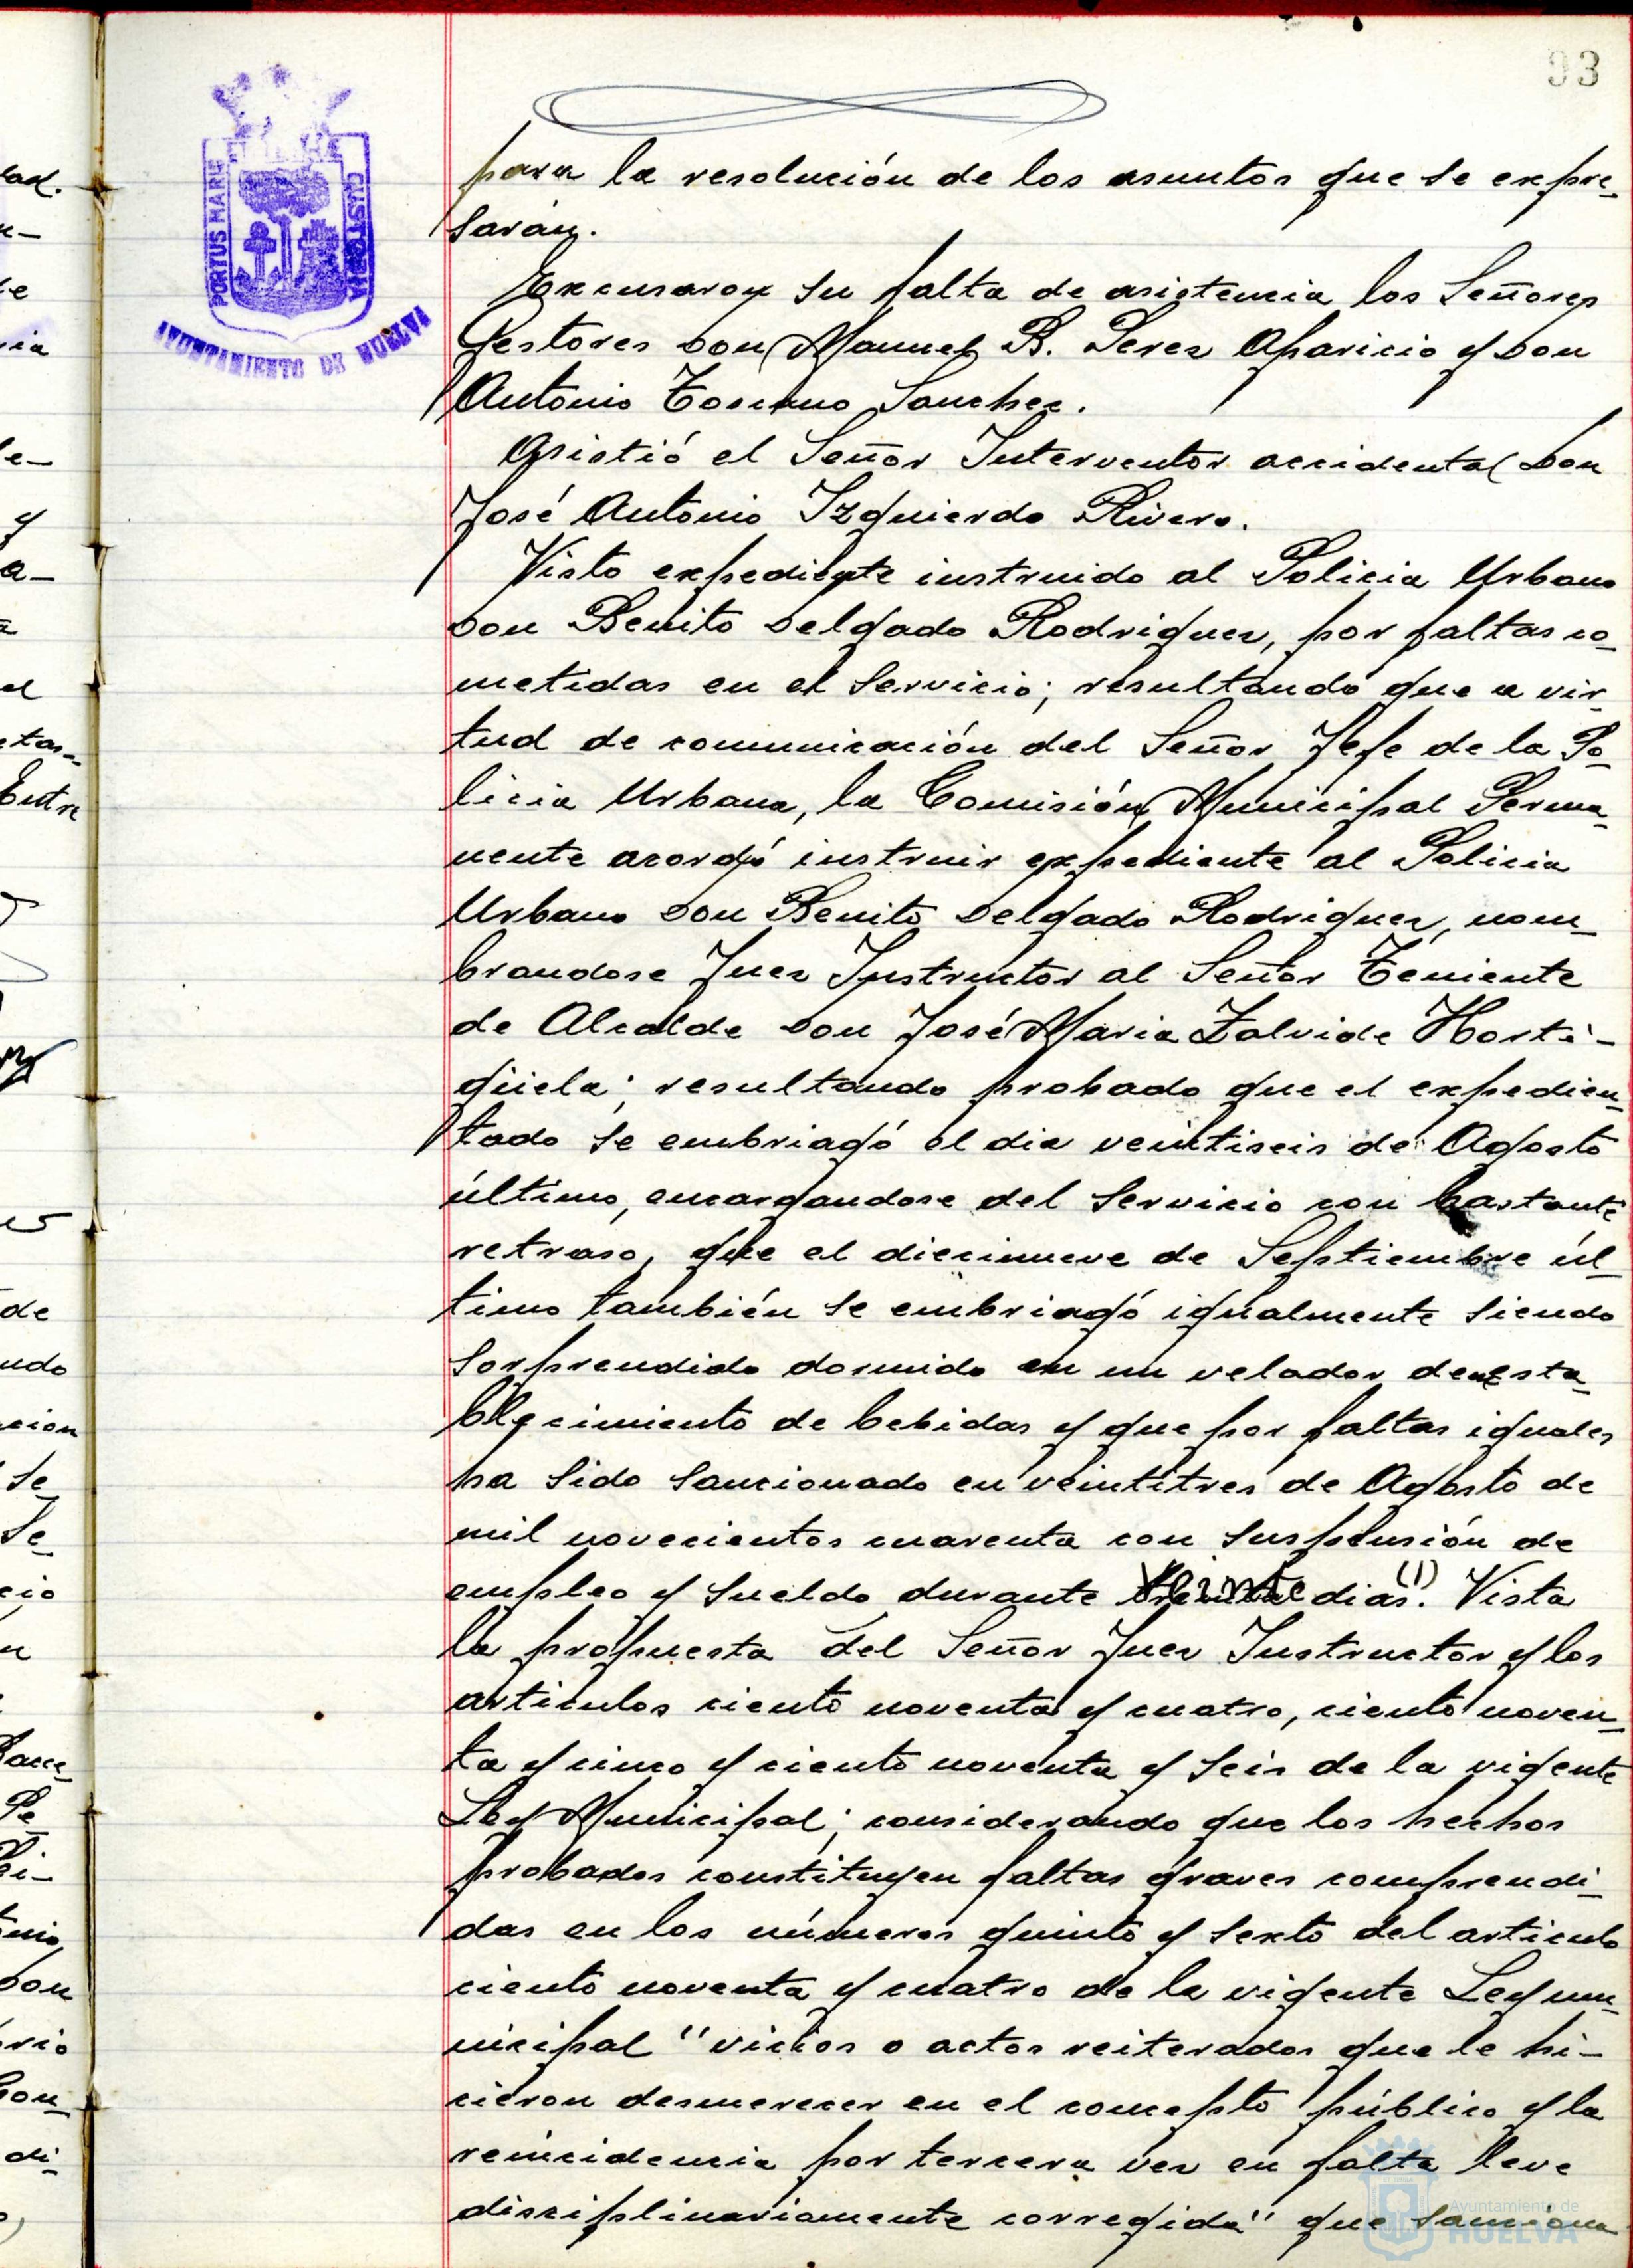 93
PORTUS MARIS
CUSTODIA
AYUNTAMIENTO DE HUELVA
para la resolución de los asuntos que se expre-
sarán.
Excusaron su falta de asistencia los Señores
Gestores Don Manuel B. Perez Aparicio y Don
Antonio Toscano Sanchez.
Asistió el Señor Interventor accidental Don
José Antonio Izquierdo Rivero.
Visto expediente instruido al Policia Urbano
Don Benito Delgado Rodriguez, por faltas co-
metidas en el servicio; resultando que a vir-
tud de comunicación del Señor Jefe de la Po-
licia Urbana, la Comisión Municipal Perma-
nente acordó instruir expediente al Policia
Urbano Don Benito Delgado Rodriguez, nom-
brandose Juez Instructor al Señor Teniente
de Alcalde Don José Maria Zalvide Horti-
güela; resultando probado que el expedien-
tado se embriagó el dia veintiseis de Agosto
último, encargandose del servicio con bastante
retraso, que el diecinueve de Septiembre úl-
timo también se embriagó igualmente siendo
sorprendido dormido en un velador de esta-
blecimiento de bebidas y que por faltas iguales
ha sido sancionado en veintitres de Agosto de
mil novecientos cuarenta con suspensión de
empleo y sueldo durante veinte dias. (1) Vista
la propuesta del Señor Juez Instructor y los
articulos ciento noventa y cuatro, ciento noven-
ta y cinco y ciento noventa y seis de la vigente
Ley Municipal; considerando que los hechos
probados constituyen faltas graves comprendi-
das en los números quinto y sexto del articulo
ciento noventa y cuatro de la vigente Ley mu-
nicipal "vicios o actos reiterados que le hi-
cieron desmerecer en el concepto público y la
reincidencia por tercera vez en falta leve
disciplinariamente corregida" que sanciona
Ayuntamiento de
HUELVA